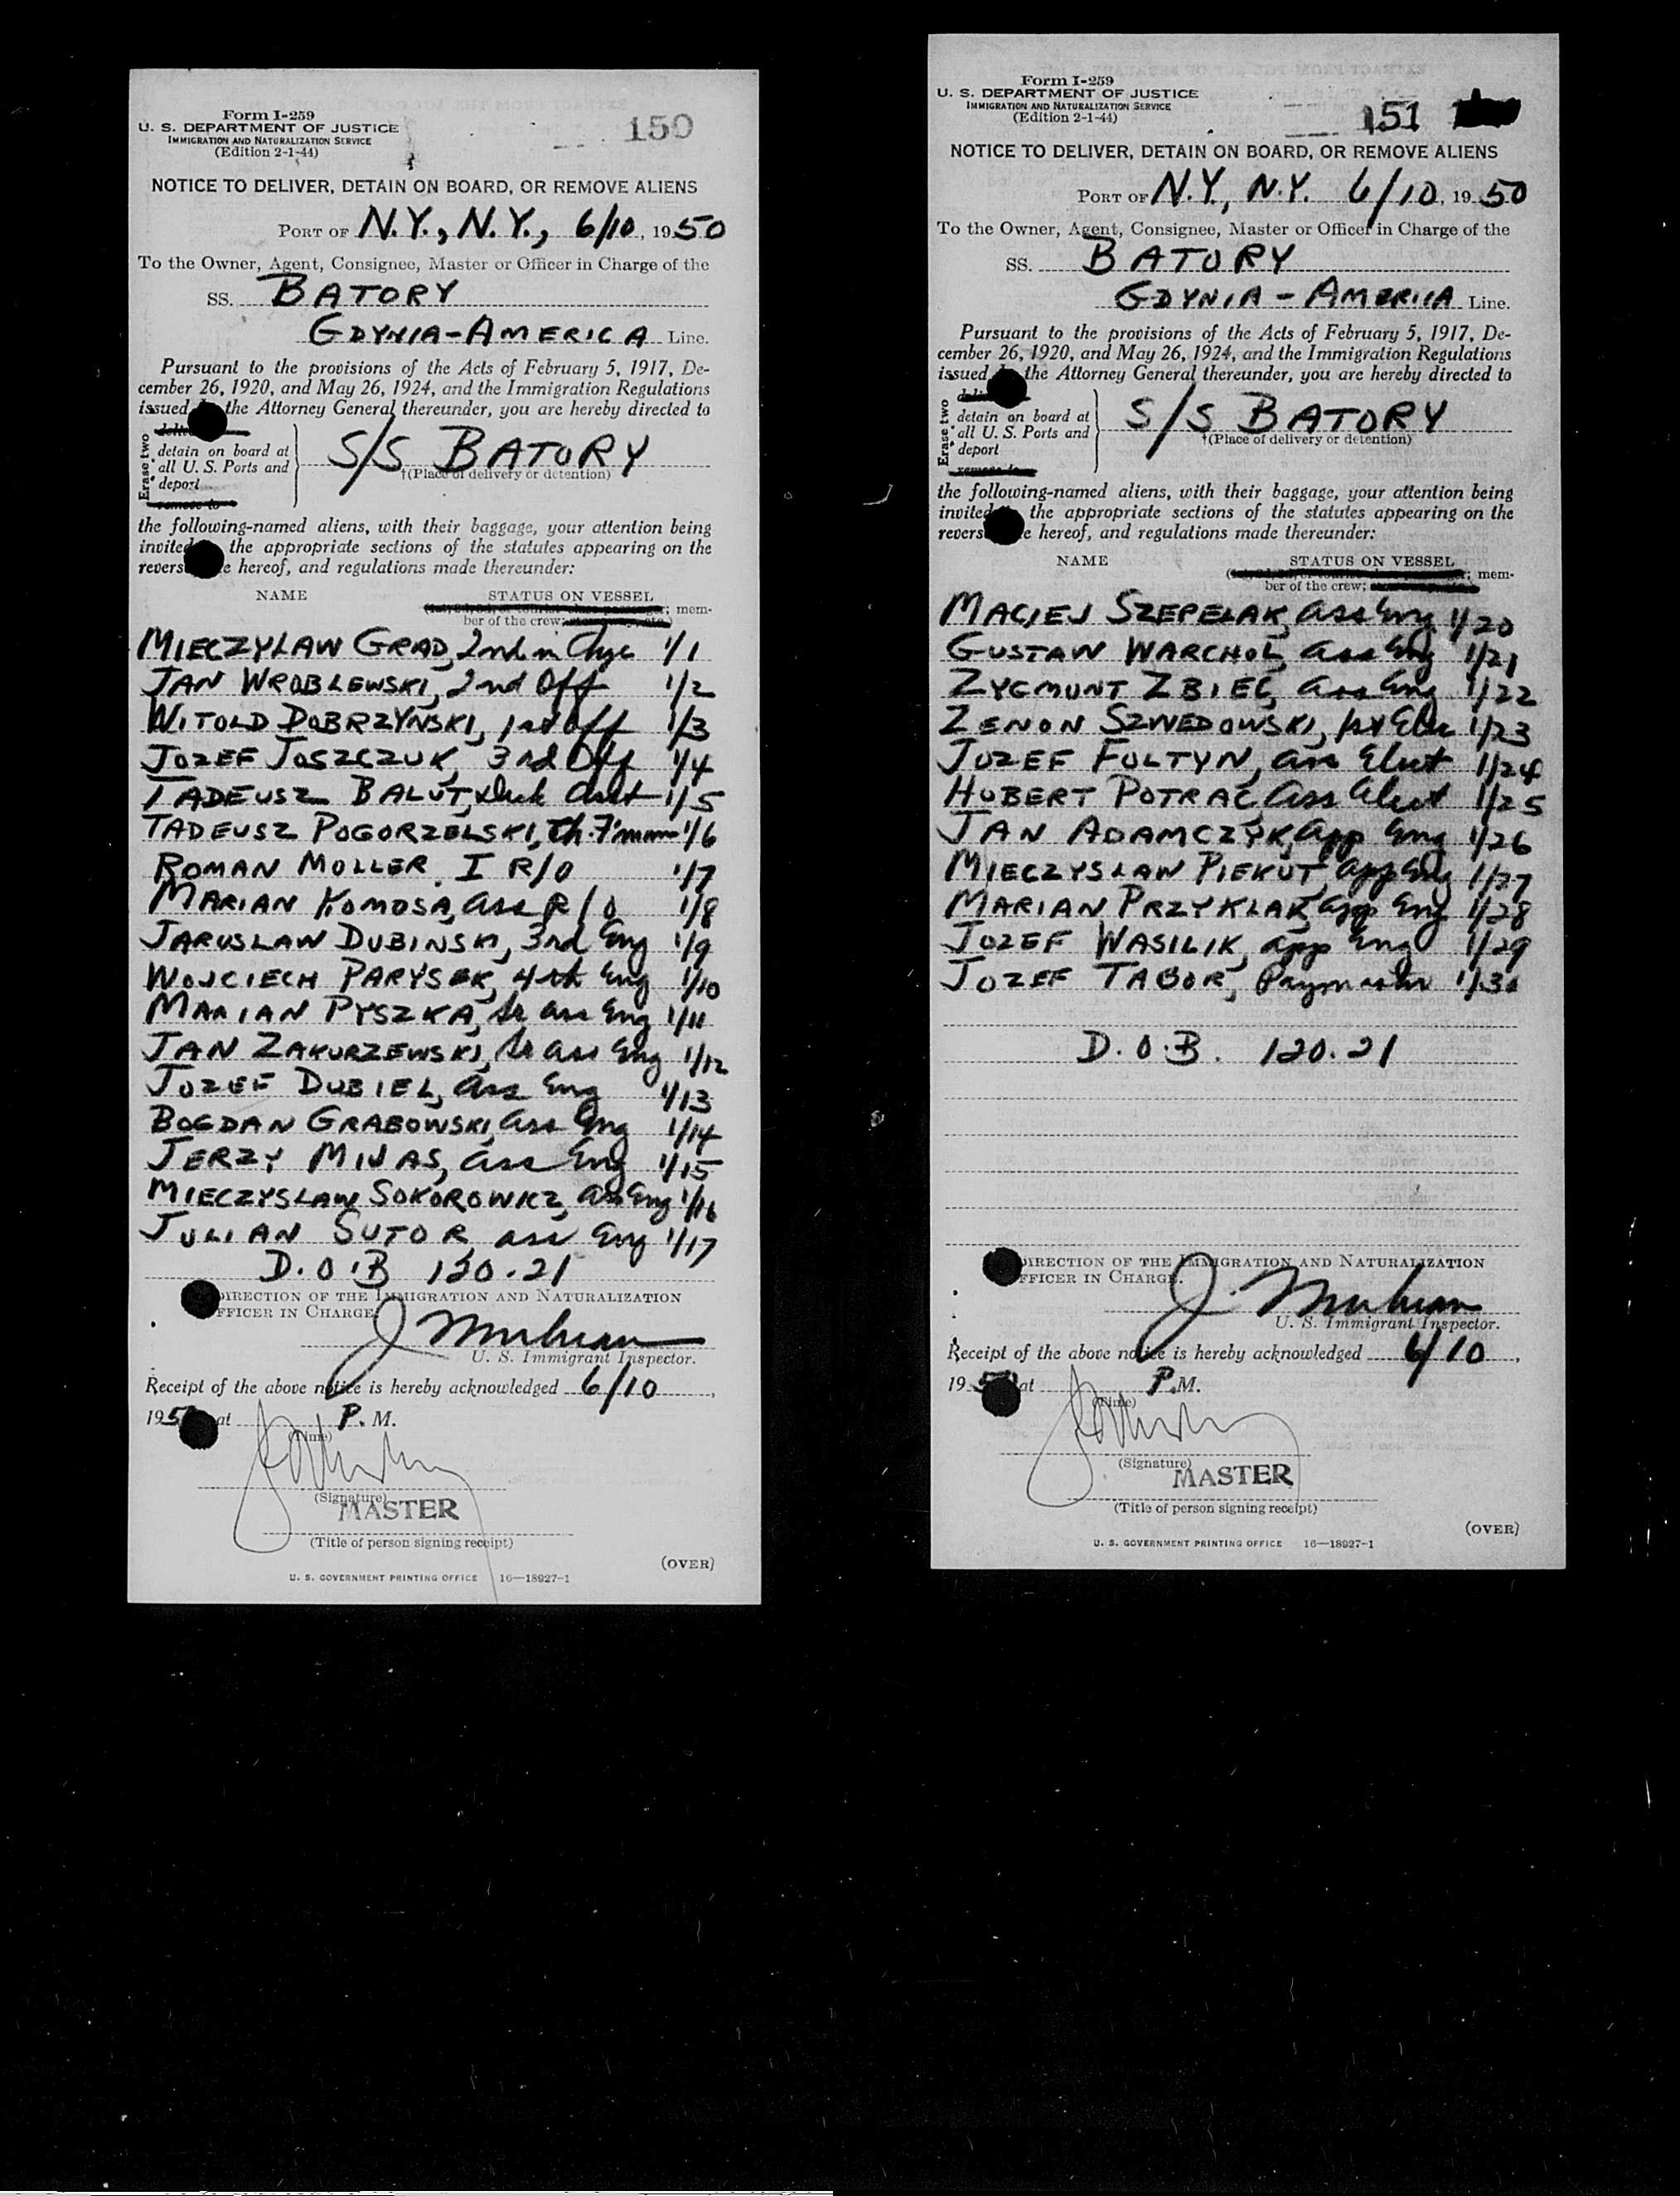 Form I-259
U. S. DEPARTMENT OF JUSTICE
IMMIGRATION AND NATURALIZATION SERVICE
(Edition 2-1-44)
150
NOTICE TO DELIVER, DETAIN ON BOARD, OR REMOVE ALIENS
PORT OF N.Y., N.Y., 6/10, 1950
To the Owner, Agent, Consignee, Master or Officer in Charge of the
SS. BATORY
GDYNIA-AMERICA Line.
Pursuant to the provisions of the Acts of February 5, 1917, De-
cember 26, 1920, and May 26, 1924, and the Immigration Regulations
issued the Attorney General thereunder, you are hereby directed to
Erase two
detain on board at
all U. S. Ports and
deport
S/S BATORY
†(Place of delivery or detention)
the following-named aliens, with their baggage, your attention being
invited the appropriate sections of the statutes appearing on the
revers e hereof, and regulations made thereunder:
NAME STATUS ON VESSEL
; mem-
ber of the crew;
MIECZYLAW GRAD, 2nd in Chge 1/1
JAN WROBLEWSKI, 2nd Off 1/2
WITOLD DOBRZYNSKI, 1st Off 1/3
JOZEF JOSZCZUK, 3rd Off 1/4
TADEUSZ BALUT, 1/5
TADEUSZ POGORZELSKI, 1/6
ROMAN MOLLER. I R/O 1/7
MARIAN KOMOSA, ass R/O 1/8
JAROSLAW DUBINSKI, 3rd Eng 1/9
WOJCIECH PARYSEK, 4th Eng 1/10
MARIAN PYSZKA, Sr ass Eng 1/11
JAN ZAKURZEWSKI, Sr ass Eng 1/12
JOZEF DUBIEL, ass Eng 1/13
BOGDAN GRABOWSKI, ass Eng 1/14
JERZY MIJAS, ass Eng 1/15
MIECZYSLAW SOKOROWICZ, ass Eng 1/16
JULIAN SUTOR ass Eng 1/17
D.O.B 120.21
DIRECTION OF THE IMMIGRATION AND NATURALIZATION
FFICER IN CHARGE.
U. S. Immigrant Inspector.
Receipt of the above notice is hereby acknowledged 6/10,
195 at P. M.
(Time)
(Signature)
MASTER
(Title of person signing receipt)
(OVER)
U. S. GOVERNMENT PRINTING OFFICE 16—18927-1
Form I-259
U. S. DEPARTMENT OF JUSTICE
IMMIGRATION AND NATURALIZATION SERVICE
(Edition 2-1-44)
151
NOTICE TO DELIVER, DETAIN ON BOARD, OR REMOVE ALIENS
PORT OF N.Y., N.Y. 6/10, 1950
To the Owner, Agent, Consignee, Master or Officer in Charge of the
SS. BATORY
GDYNIA-AMERICA Line.
Pursuant to the provisions of the Acts of February 5, 1917, De-
cember 26, 1920, and May 26, 1924, and the Immigration Regulations
issued the Attorney General thereunder, you are hereby directed to
Erase two
detain on board at
all U. S. Ports and
deport
S/S BATORY
†(Place of delivery or detention)
the following-named aliens, with their baggage, your attention being
invited the appropriate sections of the statutes appearing on the
revers e hereof, and regulations made thereunder:
NAME STATUS ON VESSEL
; mem-
ber of the crew;
MACIEJ SZEPELAK, ass Eng 1/20
GUSTAW WARCHOL, ass Eng 1/21
ZYGMUNT ZBIEC, ass Eng 1/22
ZENON SZWEDOWSKI, 1st Elec 1/23
JOZEF FOLTYN, ass Elect 1/24
HUBERT POTRAC, ass Elect 1/25
JAN ADAMCZYK, app Eng 1/26
MIECZYSLAW PIEKUT, app Eng 1/27
MARIAN PRZYKLAK, app Eng 1/28
JOZEF WASILIK, app Eng 1/29
JOZEF TABOR, Paymaster 1/30
D.O.B. 120.21
DIRECTION OF THE IMMIGRATION AND NATURALIZATION
FFICER IN CHARGE.
U. S. Immigrant Inspector.
Receipt of the above notice is hereby acknowledged 6/10,
195 at P.M.
(Time)
(Signature)
MASTER
(Title of person signing receipt)
(OVER)
U. S. GOVERNMENT PRINTING OFFICE 16—18927-1